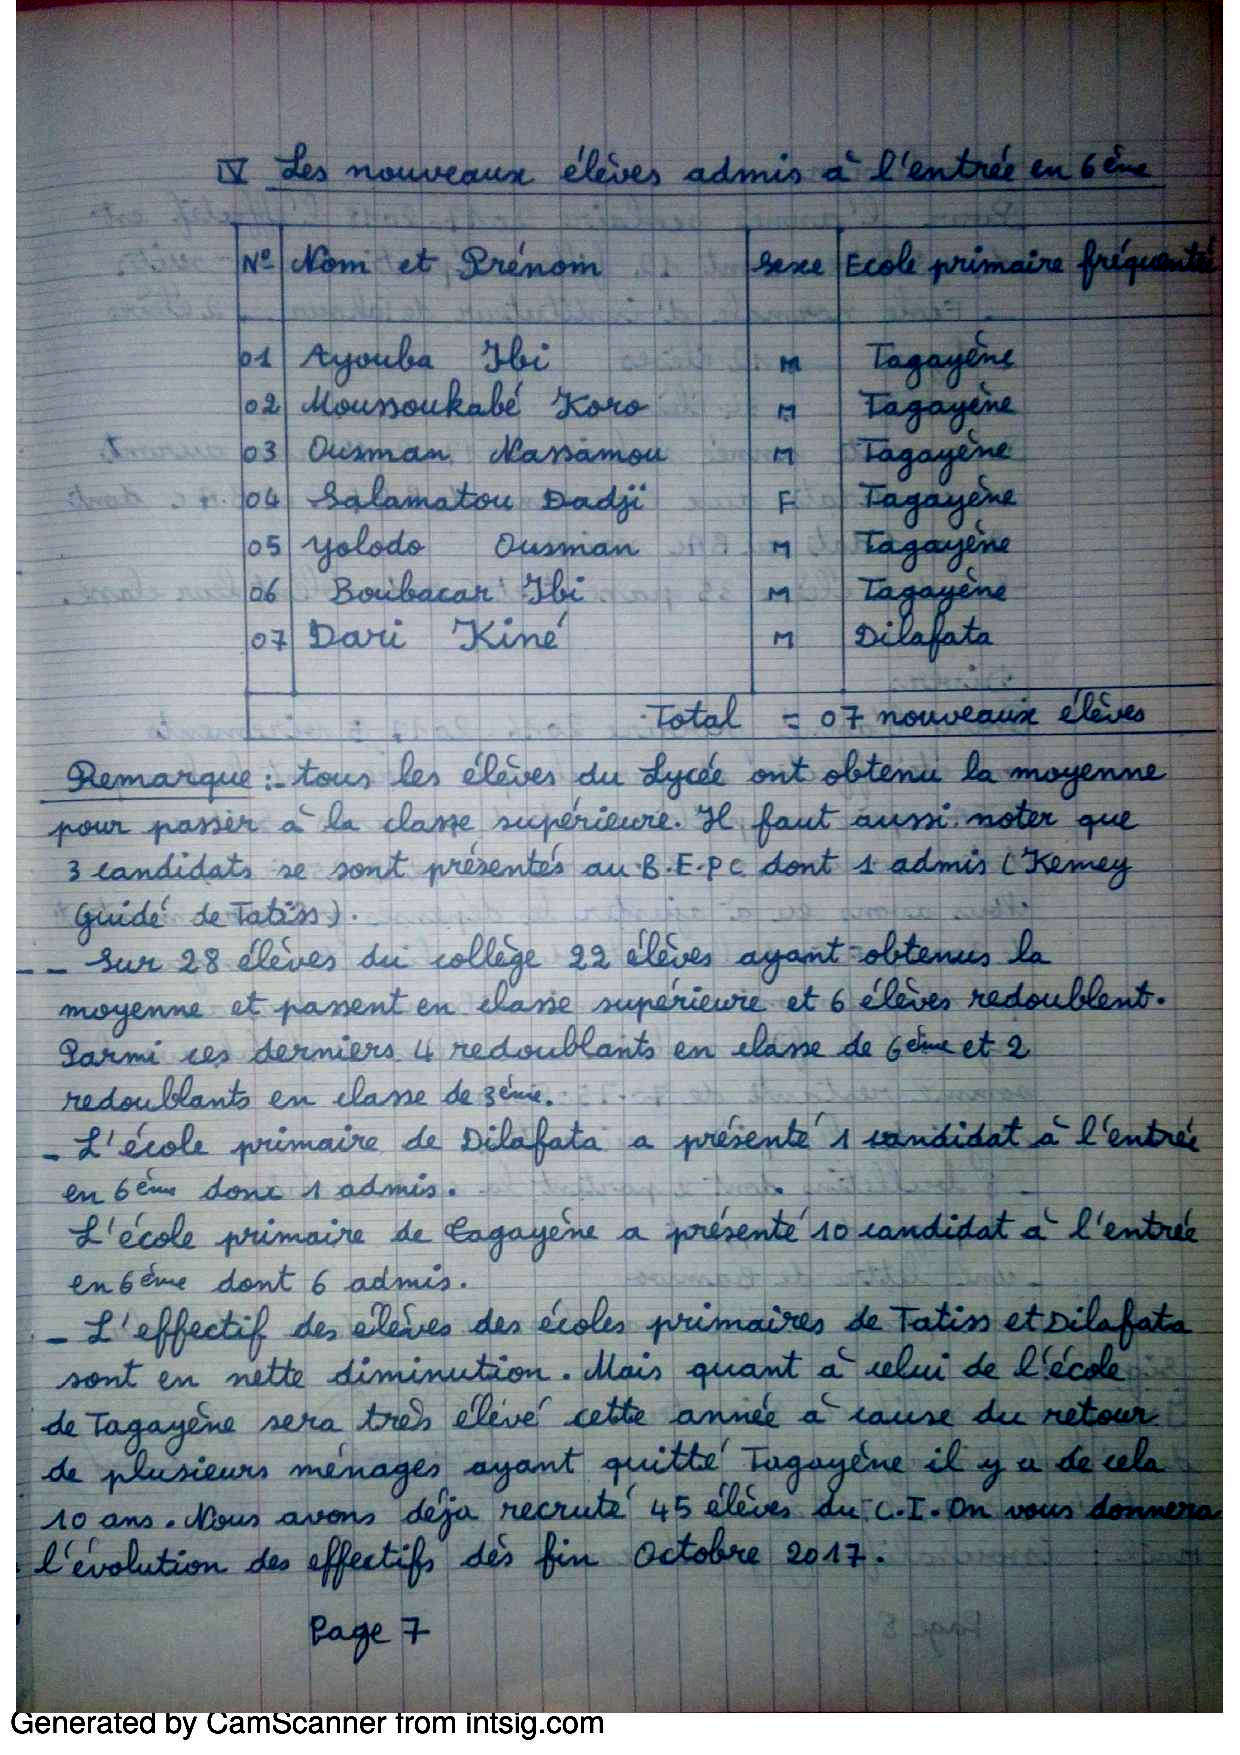 IV Les nouveaux élèves admis à l'entrée en 6ème
N° Nom et Prénom Sexe Ecole primaire fréquenté
01 Ayouba Ibi M Tagayène
02 Moussoukabé Koro M Tagayène
03 Ousman Nassamou M Tagayène
04 Salamatou Dadji F Tagayène
05 Yolodo Ousman M Tagayène
06 Boubacar Ibi M Tagayène
07 Dari Kiné M Dilafata
Total = 07 nouveaux élèves
Remarque :- tous les élèves du Lycée ont obtenu la moyenne
pour passer à la classe supérieure. Il faut aussi noter que
3 candidats se sont présentés au B.E.P.C dont 1 admis (Kemey
Guidé de Tatiss).
- - Sur 28 élèves du collège 22 élèves ayant obtenus la
moyenne et passent en classe supérieure et 6 élèves redoublent.
Parmi ces derniers 4 redoublants en classe de 6ème et 2
redoublants en classe de 3ème.
- L'école primaire de Dilafata a présenté 1 candidat à l'entrée
en 6ème donc 1 admis.
L'école primaire de Tagayène a présenté 10 candidat à l'entrée
en 6ème dont 6 admis.
- L'effectif des élèves des écoles primaires de Tatiss et Dilafata
sont en nette diminution. Mais quant à celui de l'école
de Tagayène sera très élevé cette année à cause du retour
de plusieurs ménages ayant quitté Tagayène il y a de cela
10 ans. Nous avons déja recruté 45 élèves du C.I. On vous donnera
l'évolution des effectifs dès fin Octobre 2017.
Page 7
Generated by CamScanner from intsig.com